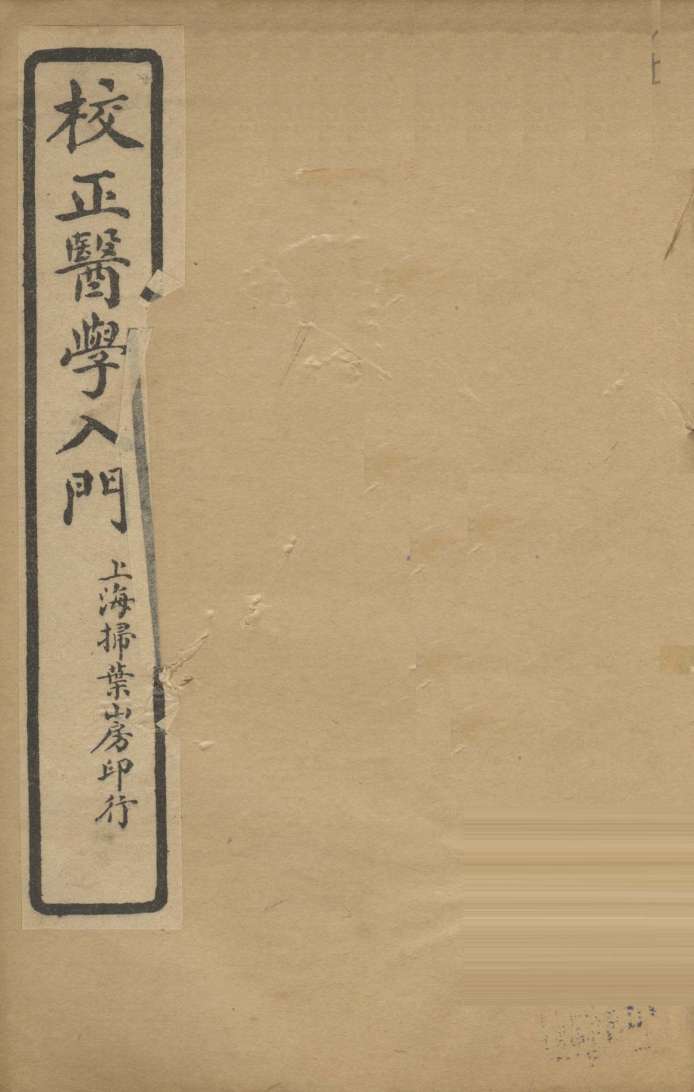 校正醫學入門
上海掃葉山房印行